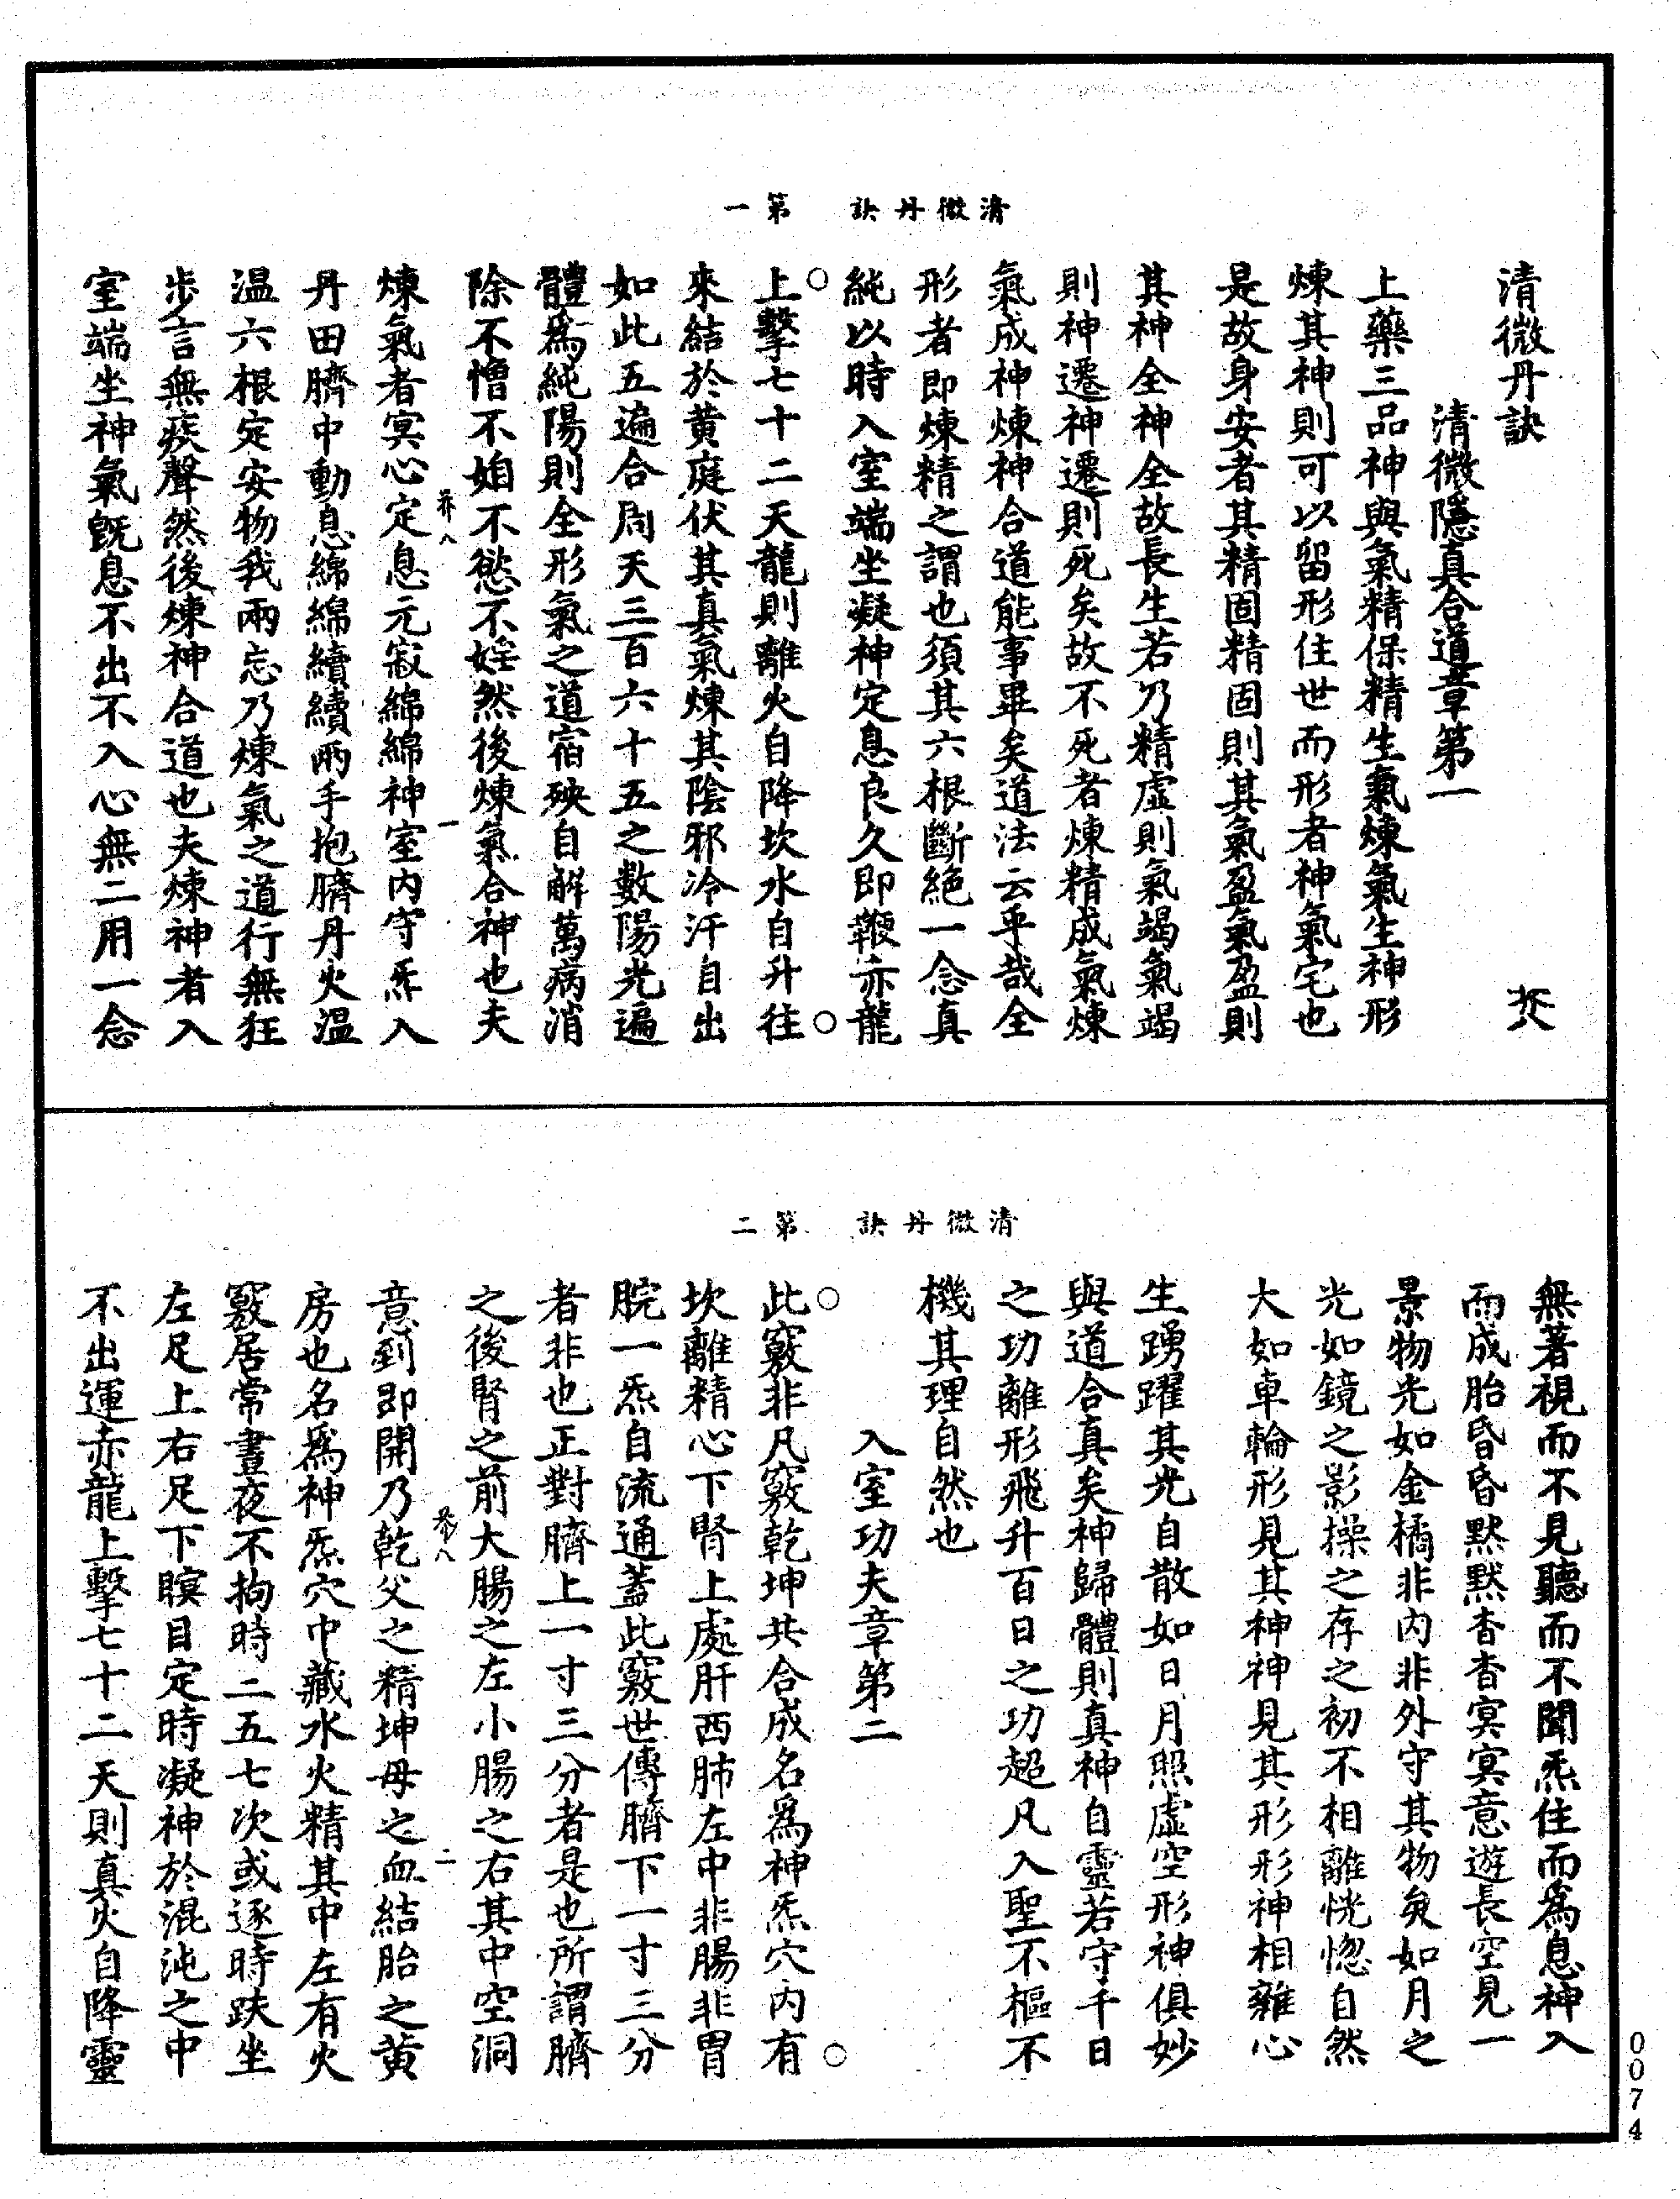 清微丹訣 第一
清微丹訣
清微隱真合道章第一
上藥三品神與氣精保精生氣煉氣生神形
煉其神則可以留形住世而形者神氣宅也
是故身安者其精固精固則其氣盈氣盈則
其神全神全故長生若乃精虛則氣竭氣竭
則神遷神遷則死矣故不死者煉精成氣煉
氣成神煉神合道能事畢矣道法云乎哉全
形者即煉精之謂也須其六根斷絕一念真
純以時入室端坐凝神定息良久即鞭赤龍
上擊七十二天龍則離火自降坎水自升往
來結於黃庭伏其真氣煉其陰邪冷汗自出
如此五遍合周天三百六十五之數陽光遍
體爲純陽則全形氣之道宿殃自解萬病消
除不憎不妬不慾不婬然後煉氣合神也夫
煉氣者冥心定息元寂綿綿神室內守炁入
丹田臍中動息綿綿續續兩手抱臍丹火溫
温六根定安物我兩忘乃煉氣之道行無狂
步言無疾聲然後煉神合道也夫煉神者入
室端坐神氣旣息不出不入心無二用一念
清微丹訣 第二
無著視而不見聽而不聞炁住而爲息神入
而成胎昏昏默默杳杳冥冥意遊長空見一
景物光如金橘非內非外守其物矣如月之
光如鏡之影操之存之初不相離恍惚自然
大如車輪形見其神神見其形形神相雜心
生踴躍其光自散如日月照虛空形神俱妙
與道合真矣神歸體則真神自靈若守千日
之功離形飛升百日之功超凡入聖不樞不
機其理自然也
入室功夫章第二
此竅非凡竅乾坤共合成名爲神炁穴內有
坎離精心下腎上處肝西肺左中非腸非胃
脘一炁自流通蓋此竅世傳臍下一寸三分
者非也正對臍上一寸三分者是也所謂臍
之後腎之前大腸之左小腸之右其中空洞
意到即開乃乾父之精坤母之血結胎之黄
房也名爲神炁穴中藏水火精其中左有火
竅居常晝夜不拘時二五七次或逐時趺坐
左足上右足下瞑目定時凝神於混沌之中
不出運赤龍上擊七十二天則真火自降靈
0074